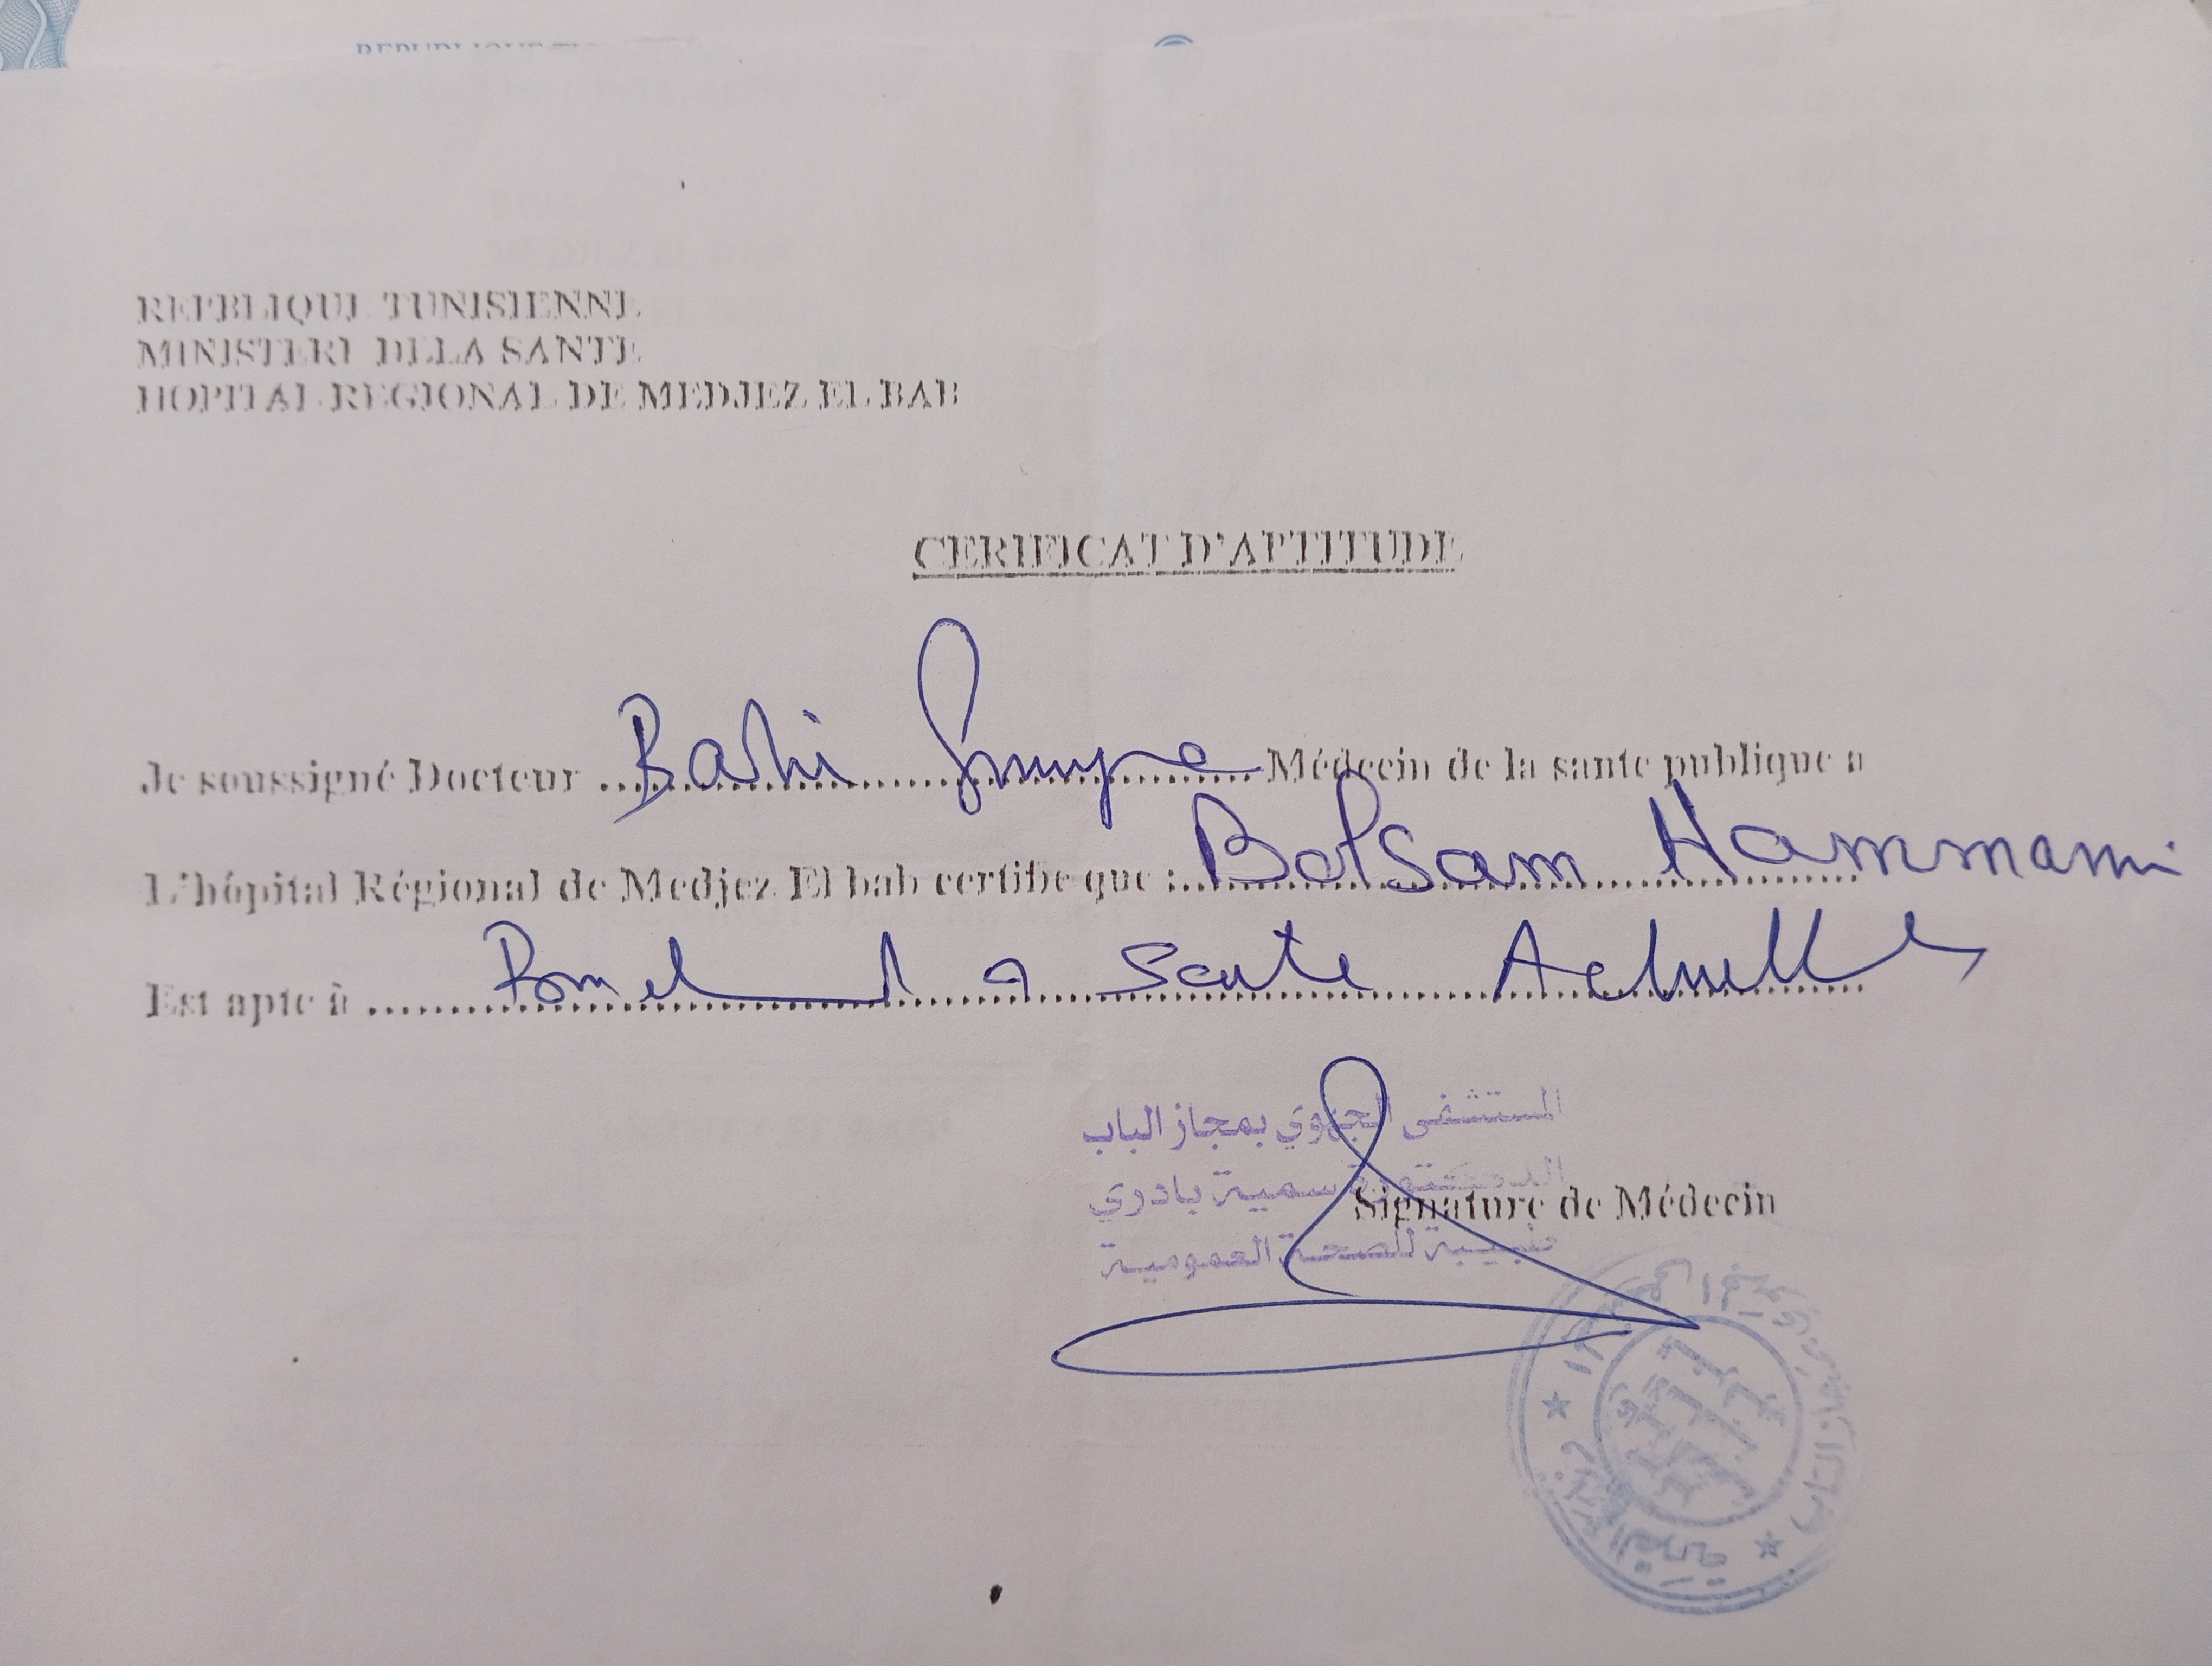 REPBLIQUE TUNISIENNE
MINISTERE DELA SANTE
HOPITAL REGIONAL DE MEDJEZ EL BAB
CERIFICAT D'APTITUDE
Je soussigné Docteur ............ Médecin de la sante publique a
L'hôpital Régional de Medjez El bab certifie que : Balsam Hammami
Est apte à ............ Sante Actuelle
المستشفى الجهوي بمجاز الباب
الدكتورة سمية بادري
Signature de Médecin
طبيبة للصحة العمومية